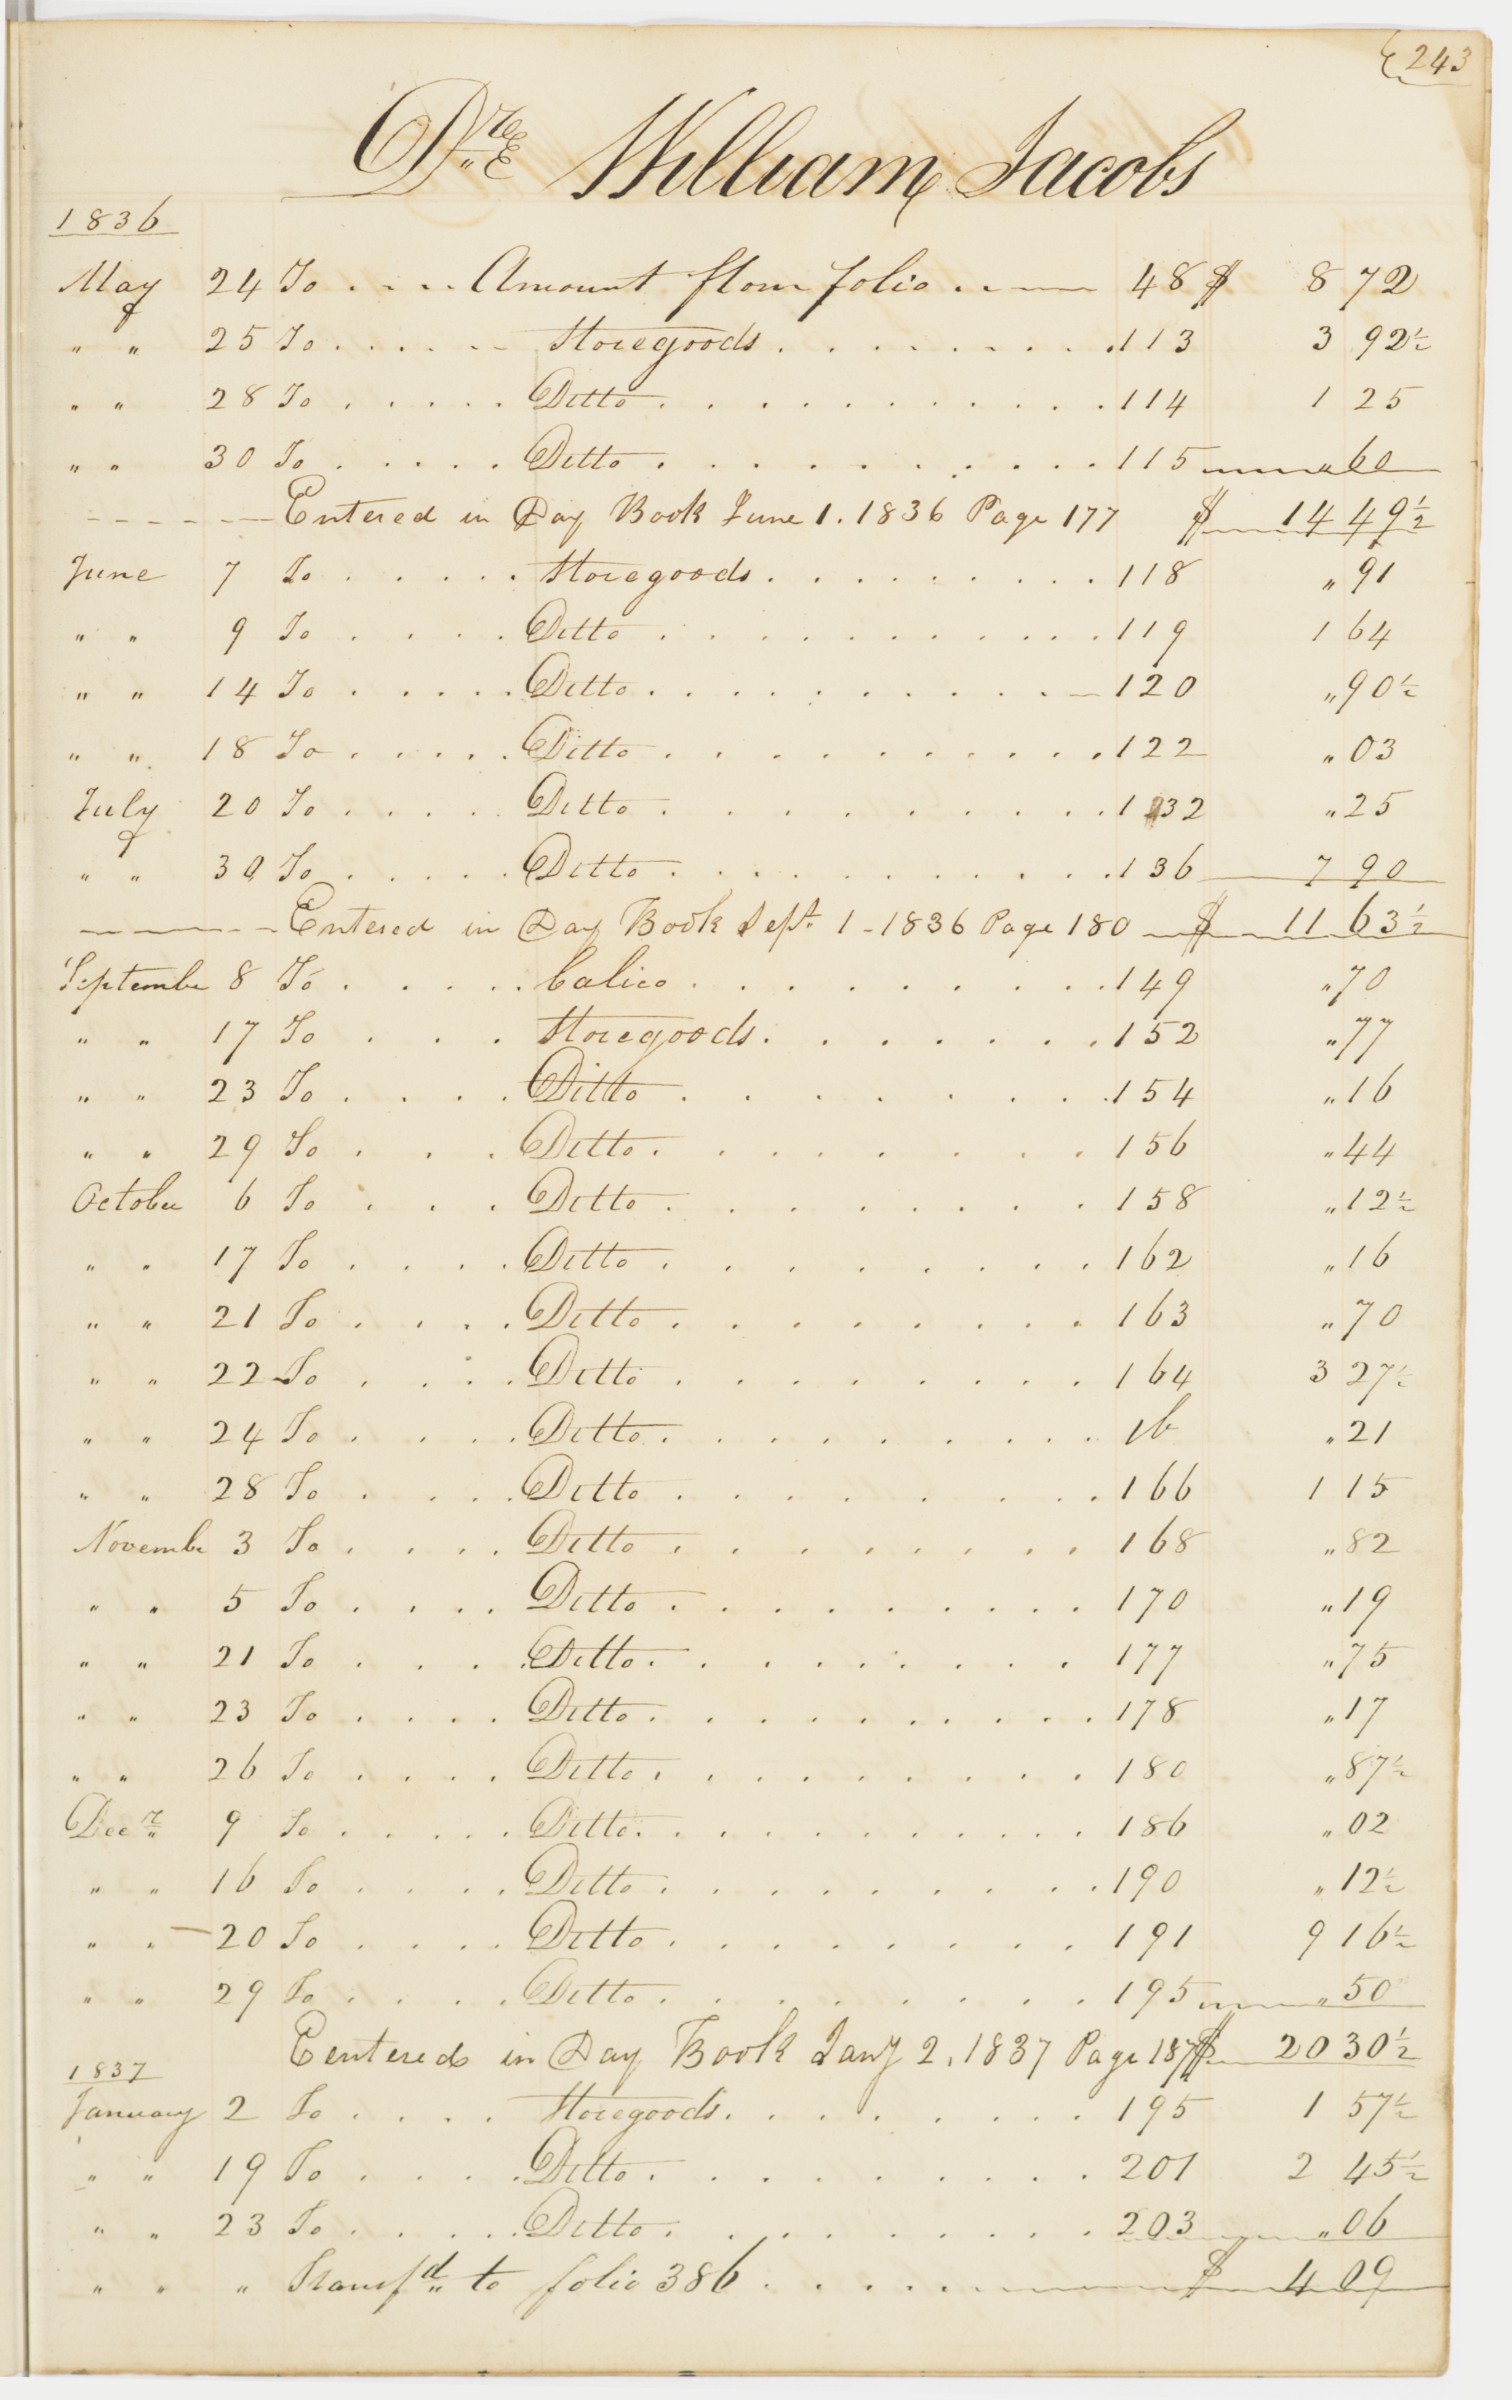 243
Dr. William Jacobs
1836
May 24 To .... Amount from folio .... 48 $ 8 72
" " 25 To ...... Storegoods ........ 113 3 92½
" " 28 To ..... Ditto ........... 114 1 25
" " 30 To ..... Ditto .......... 115 " 60
Entered in Day Book June 1. 1836 Page 177 $ 14 49½
June 7 To ..... Storegoods ......... 118 " 91
" " 9 To .... Ditto ........... 119 1 64
" " 14 To ..... Ditto .......... 120 " 90½
" " 18 To ..... Ditto .......... 122 " 03
July 20 To .... Ditto ......... 132 " 25
" " 30 To ..... Ditto .......... 136 7 90
Entered in Day Book Sept. 1 - 1836 Page 180 $ 11 63½
Septembr 8 To .... Calico ......... 149 " 70
" " 17 To ... Storegoods ....... 152 " 77
" " 23 To .... Ditto ........ 154 " 16
" " 29 To ... Ditto ........ 156 " 44
October 6 To ... Ditto ........ 158 " 12½
" " 17 To .... Ditto ......... 162 " 16
" " 21 To .... Ditto ........ 163 " 70
" " 22 To .... Ditto ........ 164 3 27½
" " 24 To .... Ditto ......... ib " 21
" " 28 To .... Ditto ........ 166 1 15
Novembr 3 To .... Ditto ........ 168 " 82
" " 5 To .... Ditto ........ 170 " 19
" " 21 To .... Ditto ........ 177 " 75
" " 23 To .... Ditto ......... 178 " 17
" " 26 To .... Ditto ......... 180 " 87½
Decr 9 To ..... Ditto ......... 186 " 02
" " 16 To .... Ditto ......... 190 " 12½
" " 20 To .... Ditto ........ 191 9 16½
" " 29 To .... Ditto ......... 195 " 50
Eentered in Day Book Jany 2. 1837 Page 187 $ 20 30½
1837
January 2 To .... Storegoods ....... 195 1 57½
" " 19 To .... Ditto ......... 201 2 45½
" " 23 To .... Ditto ......... 203 " 06
" " " Transfd to folio 386 .... $ 4 09